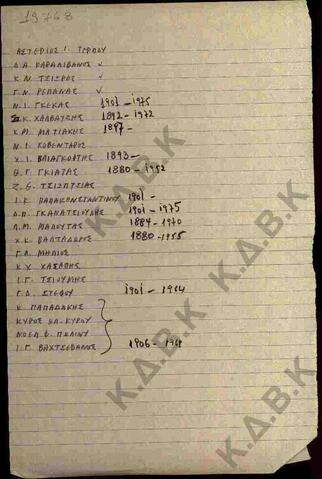 19768
ΑΣΤΕΡΙΟΣ Γ. ΤΕΡΠΟΥ
Δ.Α. ΚΑΡΑΛΙΒΑΝΟΣ ✓
Κ.Ν. ΤΣΙΡΟΣ ✓
Γ.Ν. ΡΕΠΑΝΑΣ ✓
Ν.Ι. ΓΚΕΚΑΣ 1901 - 1975
Κ. ΧΑΛΒΑΤΣΗΣ 1892 - 1972
Κ.Μ. ΜΑΤΙΑΚΗΣ 1897 -
Ν.Ι. ΚΟΒΕΝΤΑΡΟΣ
Χ.Ι. ΒΛΙΑΓΚΟΦΤΗΣ 1893 -
Θ.Γ. ΓΚΙΑΤΑΣ 1880 - 1952
Ζ.Θ. ΤΣΙΟΠΤΣΙΑΣ
Ι.Κ. ΠΑΠΑΚΩΝΣΤΑΝΤΙΝΟΥ 1901 -
Δ.Π. ΓΚΑΝΑΤΣΙΟΥΔΗΣ 1901 - 1975
Λ.Μ. ΜΑΛΟΥΤΑΣ 1884 - 1970
Χ.Κ. ΒΑΛΤΑΔΩΡΟΣ 1880 - 1955
Γ.Λ. ΜΗΛΙΟΣ
Κ.Χ. ΧΑΣΑΠΗΣ
Ι.Γ. ΤΣΙΟΥΜΗΣ
Γ.Δ. ΣΤΕΦΟΥ 1901 - 1964
Κ. ΠΑΠΑΔΑΚΗΣ
ΚΥΡΟΣ ΚΥΡΟΥ
Ι.Γ. ΒΑΧΤΣΕΒΑΝΟΣ 1906 - 1968
Κ.Δ.Β.Κ
Κ.Δ.Β.Κ
Κ.Δ.Β.Κ